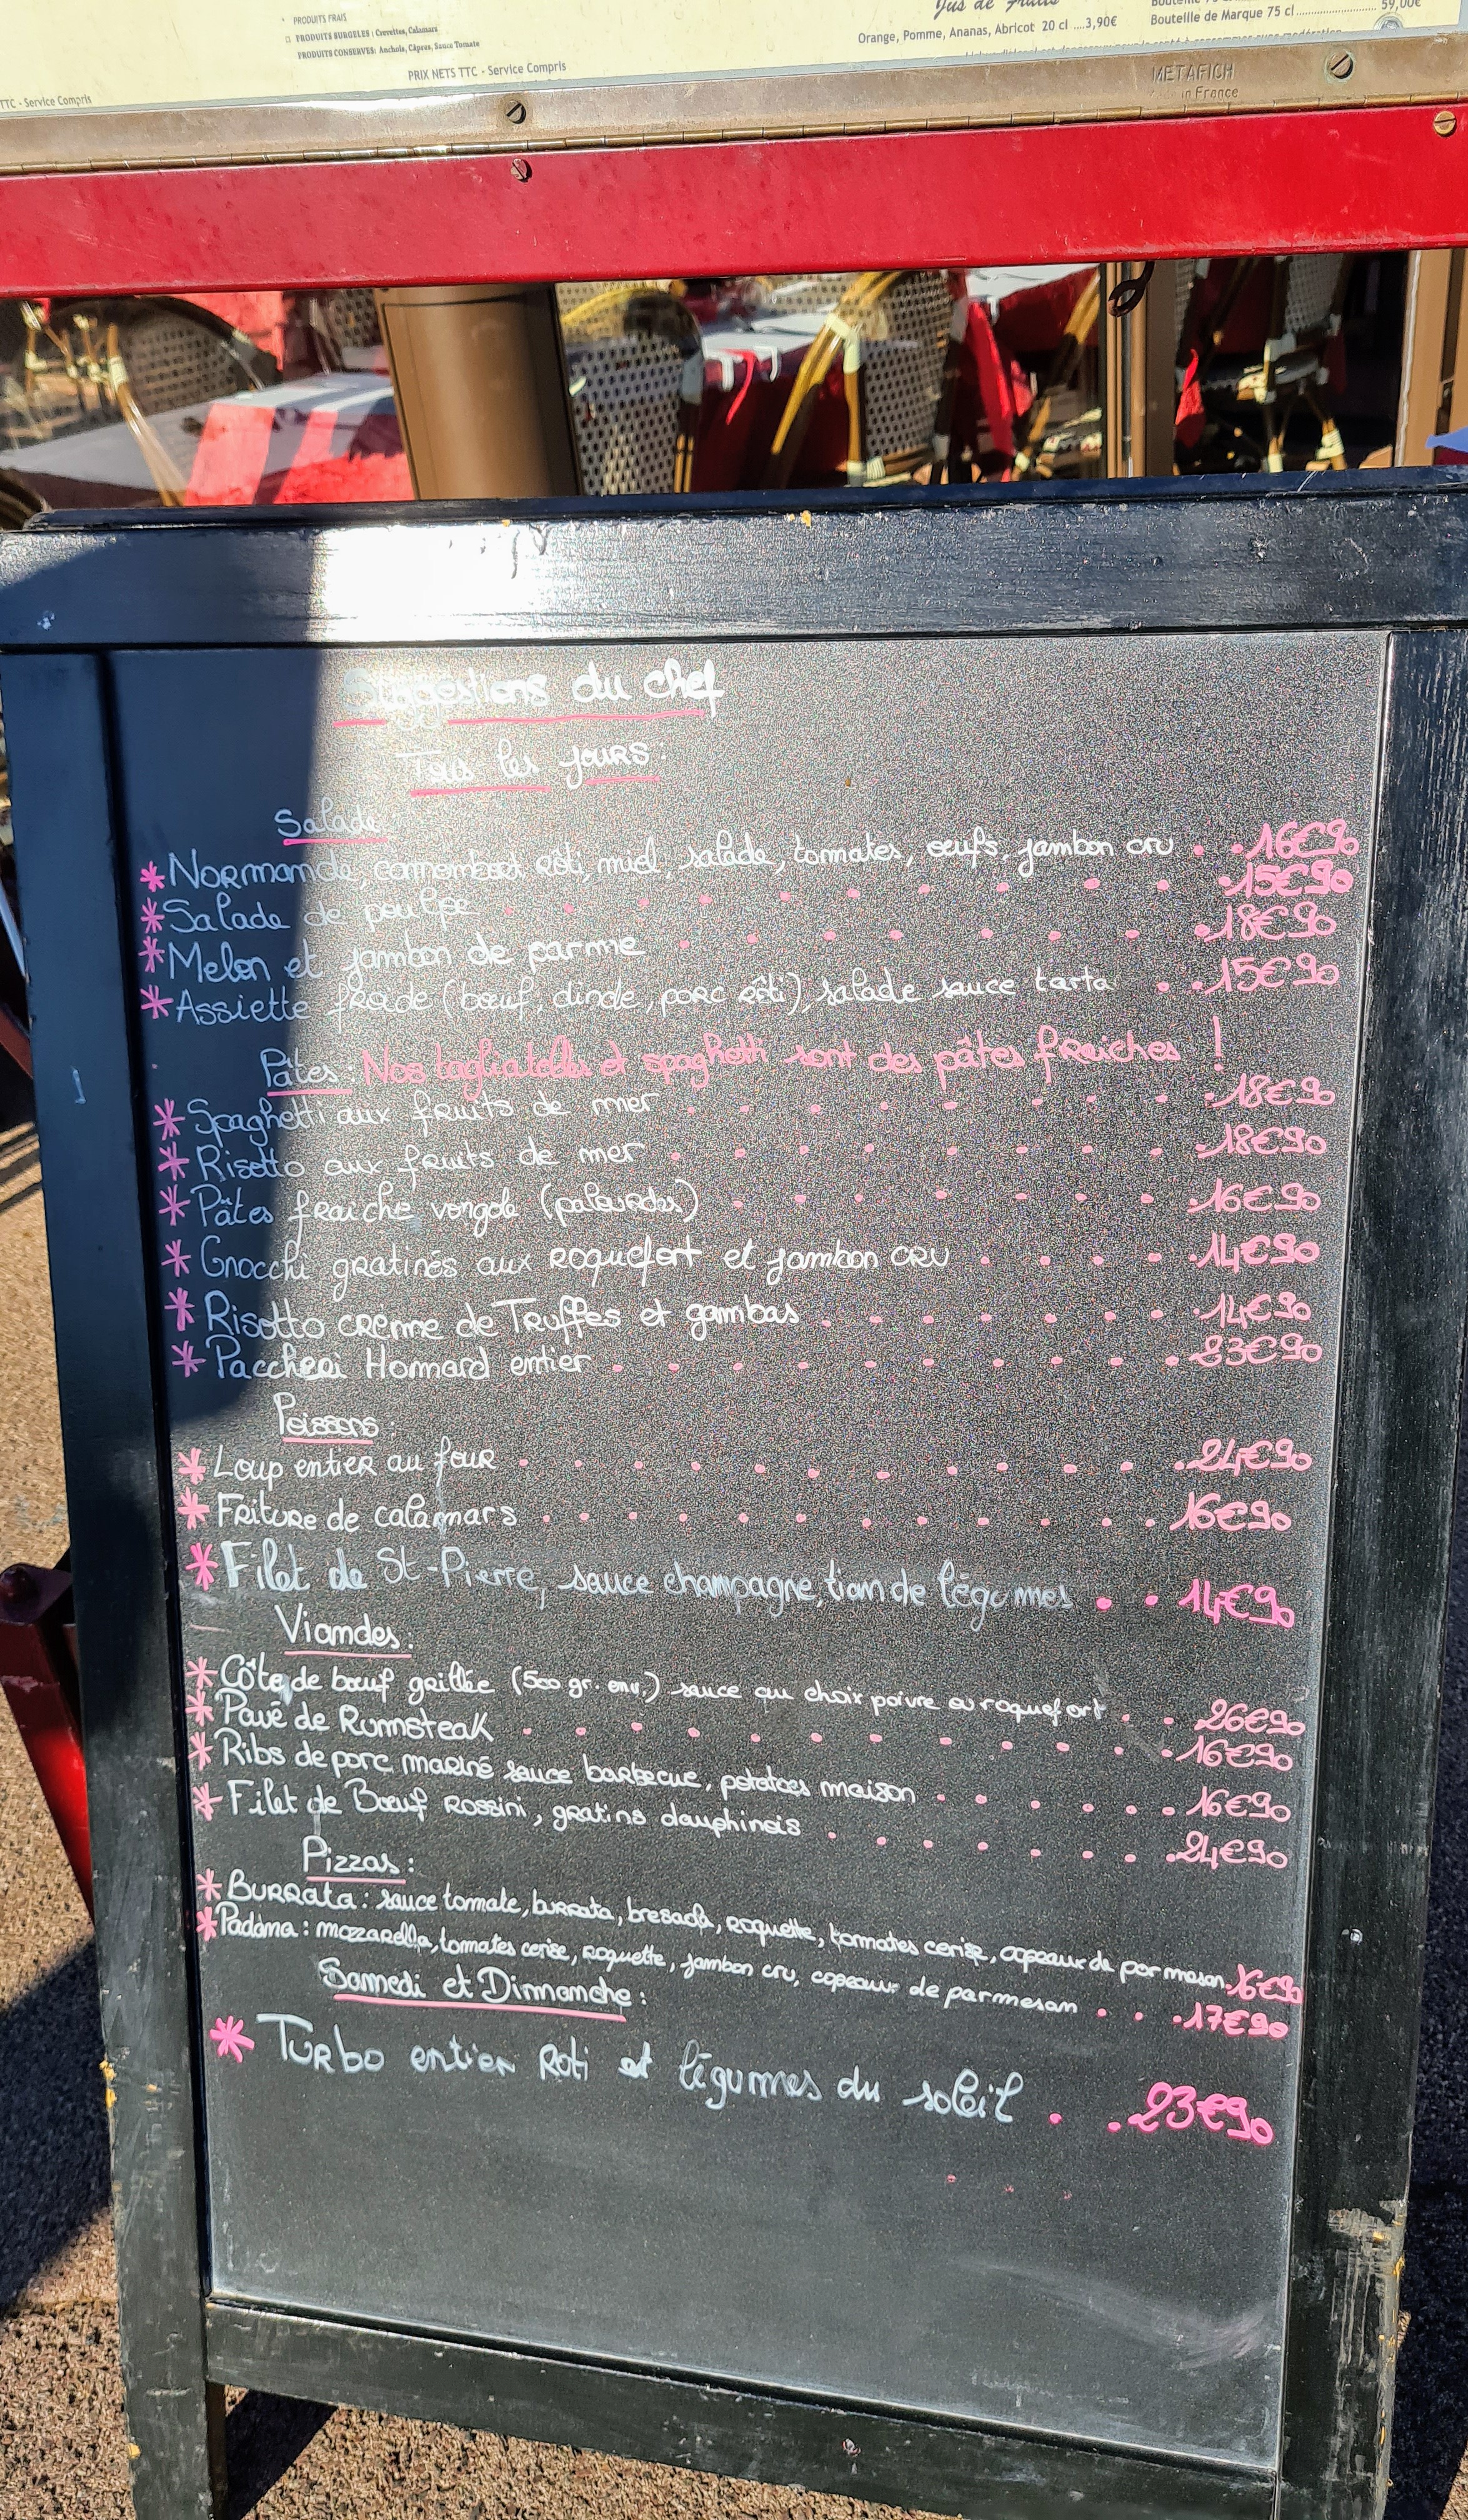 PRODUITS FRAIS
PRODUITS SURGELES : Crevettes, Calamars
PRODUITS CONSERVES: Anchois, Câpres, Sauce Tomate
PRIX NETS TTC - Service Compris
TTC - Service Compris
Jus de Fruits
Orange, Pomme, Ananas, Abricot 20 cl ....3,90€
59,00€
Bouteille de Marque 75 cl
METAFICH
Made in France
Suggestions du chef
Tous les jours :
Salade
* Normande, camembert rôti, miel, salade, tomates, oeufs, jambon cru . . 16€90
* Salade de poulpe . . . . . . . . . 15€90
* Melon et jambon de parme . . . . . . . . 18€90
* Assiette froide (bœuf, dinde, porc rôti), salade sauce tarta . . 15€90
Pâtes : Nos tagliatelles et spaghetti sont des pâtes fraiches !
* Spaghetti aux fruits de mer . . . . . . . . 18€90
* Risotto aux fruits de mer . . . . . . . . . 18€90
* Pâtes fraiche vongole (palourdes) . . . . . . . 16€90
* Gnocchi gratinés aux roquefort et jambon cru . . . . . 14€90
* Risotto crème de Truffes et gambas . . . . . . . 14€90
* Paccheri Homard entier . . . . . . . . . . 23€90
Poissons :
* Loup entier au four . . . . . . . . . . . 24€90
* Friture de calamars . . . . . . . . . . . 16€90
* Filet de St-Pierre, sauce champagne, tian de légumes . . 14€90
Viandes :
* Côte de bœuf grillée (500 gr. env.) sauce au choix poivre ou roquefort . . 26€90
* Pavé de Rumsteak . . . . . . . . . . . . 16€90
* Ribs de porc mariné sauce barbecue, potatoes maison . . . . . 16€90
* Filet de Bœuf Rossini, gratins dauphinois . . . . . . . 24€90
Pizzas :
* Burrata : sauce tomate, burrata, bresaola, roquette, tomates cerise, copeaux de parmesan, 16€90
* Padana : mozzarella, tomates cerise, roquette, jambon cru, copeaux de parmesan . . . 17€90
Samedi et Dimanche :
* Turbo entier Roti et légumes du soleil . . 23€90